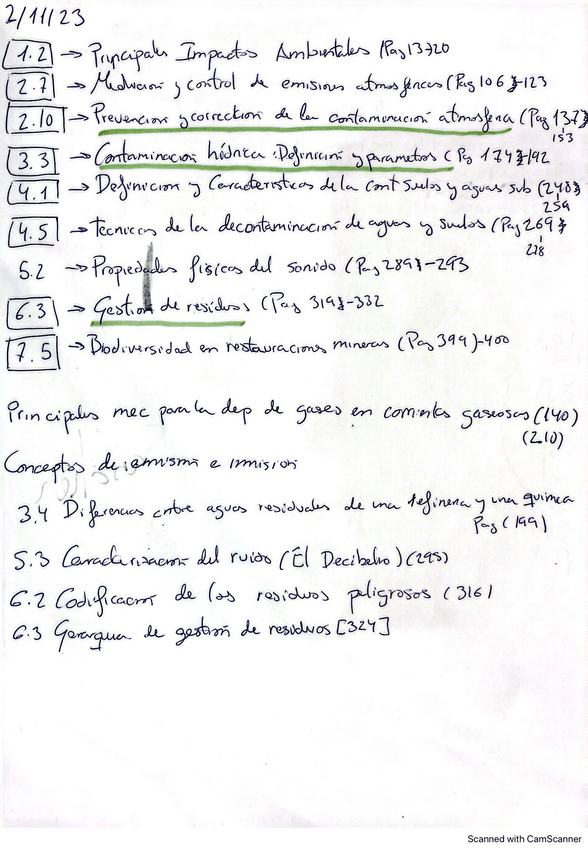 2/11/23
1.2 → Principales Impactos Ambientales (Pag 13-20
2.7 → Medicion y control de emisiones atmosfericas (Pag 106}-123
2.10 → Prevencion y correction de la contaminacion atmosfera (Pag 137}
153
3.3 → Contaminacion hídrica: Definicion y parametros (Pg 174}-192
4.1 → Definicion y Caracteristicas de la cont suelos y aguas sub (248}
259
4.5 → Tecnicas de la decontaminacion de aguas y suelos (Pag 269}
278
5.2 → Propiedades fisicas del sonido (Pag 289}-293
6.3 → Gestion de residuos (Pag 319}-332
7.5 → Biodiversidad en restauraciones mineras (Pag 399)-400
Principales mec para la dep de gases en corrientes gaseosas (140)
(210)
Conceptos de emision e inmision
3.4 Diferencias entre aguas residuales de una refineria y una quimica
Pag (199)
5.3 Caracterizacion del ruido (El Decibelio) (295)
6.2 Codificacion de los residuos peligrosos (316)
6.3 Gerarquia de gestion de residuos [324]
Scanned with CamScanner